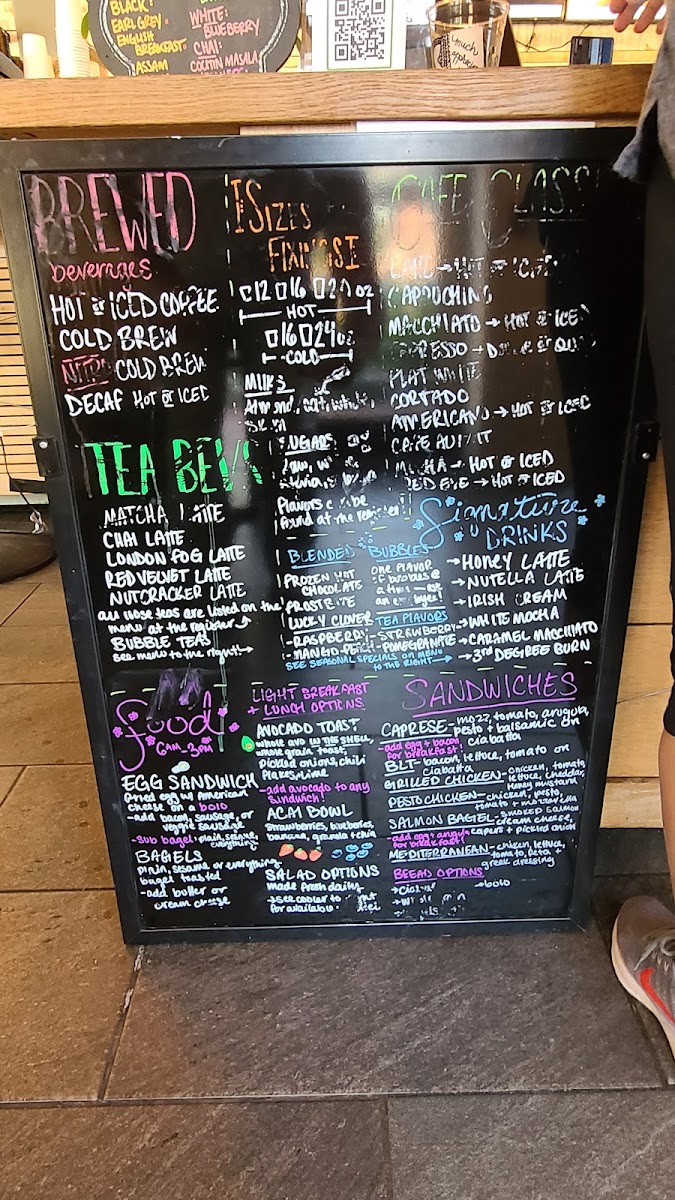 BLACK:
EARL GREY.
ENGLISH
BREAKFAST.
ASSAM
WHITE:
BLUEBERRY
CHAI:
MASALA
BREWED
beverages
HOT or ICED COFFEE
COLD BREW
NITRO COLD BREW
DECAF HOT or ICED
TEA BEVS
MATCHA LATTE
CHAI LATTE
LONDON FOG LATTE
RED VELVET LATTE
NUTCRACKER LATTE
all loose teas are listed on the
menu at the register
BUBBLE TEAS
see menu to the right!→
food
6AM-3PM
EGG SANDWICH
fried egg w/ American
cheese on a bolo
-add bacon, sausage, or
veggie sausage
-sub bagel: plain, sesame,
everything
BAGELS
plain, sesame or everything
bagel toasted
-add butter or
cream cheese
SIZES
FIXINGS
12 16 20 oz
HOT
16 24 oz
COLD
MILKS
SUGARS
Flavors can be
found at the register!!
BLENDED
FROZEN HOT
CHOCOLATE
FROSTBITE
LUCKY CLOVER
-RASPBERRY
-MANGO-PEACH
BUBBLES
ONE FLAVOR
of bubbles @
TEA FLAVORS
-STRAWBERRY
-POMEGRANATE
SEE SEASONAL SPECIALS ON MENU
TO THE RIGHT→
LIGHT BREAKFAST
+ LUNCH OPTIONS
AVOCADO TOAST
whole avo IN THE SHELL,
whole grain toast,
pickled onions, chili
flakes, lime
-add avocado to any
sandwich!
ACAI BOWL
strawberries, blueberries,
banana, granola + chia
SALAD OPTIONS
made fresh daily
→see cooler to right
for
CAFE CLASSICS
→ HOT or ICED
CAPPUCHINO
MACCHIATO → HOT or ICED
ESPRESSO →
FLAT WHITE
CORTADO
AMERICANO → HOT or ICED
CAFE AU LAIT
MOCHA → HOT or ICED
RED EYE → HOT or ICED
Signature
DRINKS
→HONEY LATTE
→NUTELLA LATTE
→IRISH CREAM
→WHITE MOCHA
→CARAMEL MACCHIATO
→3rd DEGREE BURN
SANDWICHES
CAPRESE-mozz, tomato, arugula,
pesto + balsamic on
ciabatta
-add egg + bacon
for breakfast!
BLT-bacon, lettuce, tomato on
ciabatta
GRILLED CHICKEN-chicken, tomato,
lettuce, cheddar,
honey mustard
PESTO CHICKEN-chicken, pesto,
tomato + mozzarella
SALMON BAGEL-smoked salmon
cream cheese,
capers + pickled onion
-add egg + arugula
for breakfast!
MEDITERRANEAN-chicken, lettuce,
tomato, feta +
greek dressing
BREAD OPTIONS
→bolo